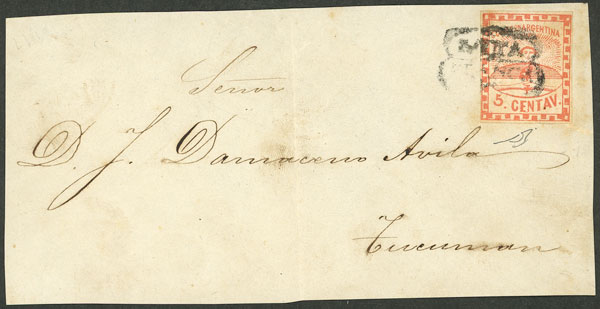 ARGENTINA
5. CENTAV.
Señor
D. J. Damaceno Avila
Tucuman